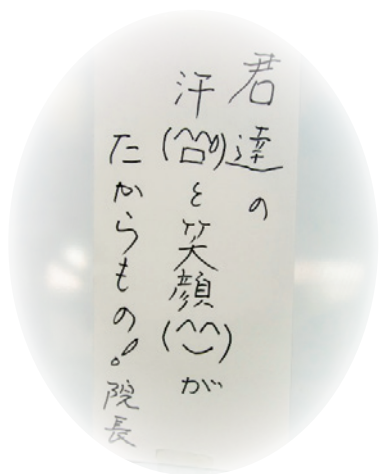 君達の
汗(^ロ^;)と笑顔(^‿^)が
たからもの!
院長